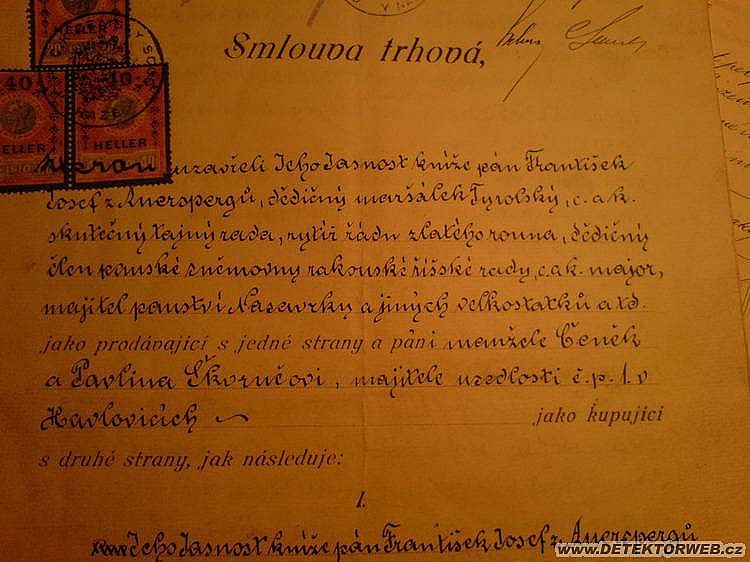 Smlouva trhová,
HELLER
40
10
HELLER
HELLER
kterou uzavřeli Jeho Jasnost kníže pán František
Josef z Auerspergů, dědičný maršálek Tyrolský, c. a k.
skutečný tajný rada, rytíř řádu zlatého rouna, dědičný
člen panské sněmovny rakouské říšské rady, c. a k. major,
majitel panství Nasavrky a jiných velkostatků a t d.
jako prodávající s jedné strany a páni manželé Čeněk
a Pavlína Škorničovi, majitelé usedlosti č. p. 1. v
Havlovicích ~ jako kupující
s druhé strany, jak následuje:
I.
Jeho Jasnost kníže pán František Josef z Auerspergů
www.DETEKTORWEB.cz